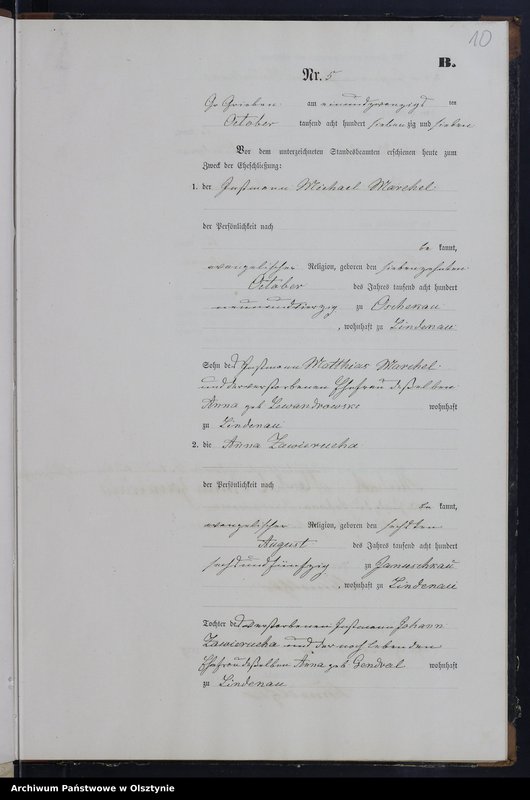 10
B.
Nr. 5
Gr Grieben am einundzwanzigs ten
October tausend acht hundert siebenzig und sieben
Vor dem unterzeichneten Standesbeamten erschienen heute zum
Zweck der Eheschließung:
1. der Instmann Michael Marchel
der Persönlichkeit nach
be kannt,
evangelischer Religion, geboren den siebenzehnten
October des Jahres tausend acht hundert
neunundvierzig zu Orchekau
, wohnhaft zu Lindenau
Sohn des Instmann Matthias Marchel
und der verstorbenen Ehefrau desselben
Anna geb Lewandrowski wohnhaft
zu Lindenau
2. die Anna Zawierucha
der Persönlichkeit nach
be kannt,
evangelischer Religion, geboren den sechsten
August des Jahres tausend acht hundert
sechsundfünfzig zu Januschkau
, wohnhaft zu Lindenau
Tochter des verstorbenen Instmann Johann
Zawierucha und der noch lebenden
Ehefrau desselben Anna geb Gendral wohnhaft
zu Lindenau
Archiwum Państwowe w Olsztynie